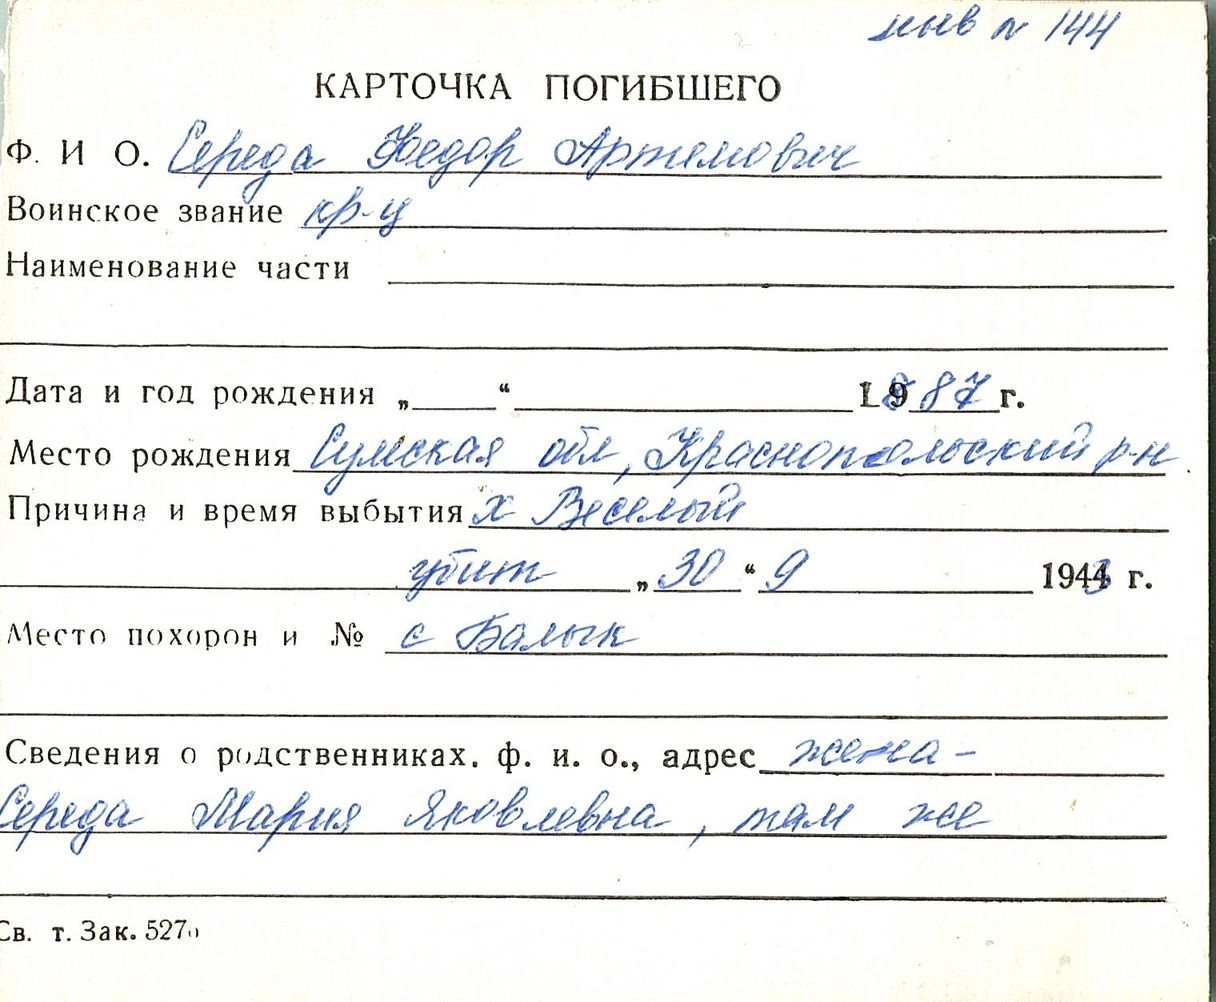 инв № 144
КАРТОЧКА ПОГИБШЕГО
Ф. И О. Середа Федор Артемович
Воинское звание кр-ц
Наименование части
Дата и год рождения „ “ 1887 г.
Место рождения Сумская обл, Краснопольский р-н
Причина и время выбытия х Веселый
убит „30“ 9 1943 г.
Место похорон и № с Балык
Сведения о родственниках. ф. и. о., адрес жена -
Середа Мария Яковлевна, там же
Св. т. Зак. 527